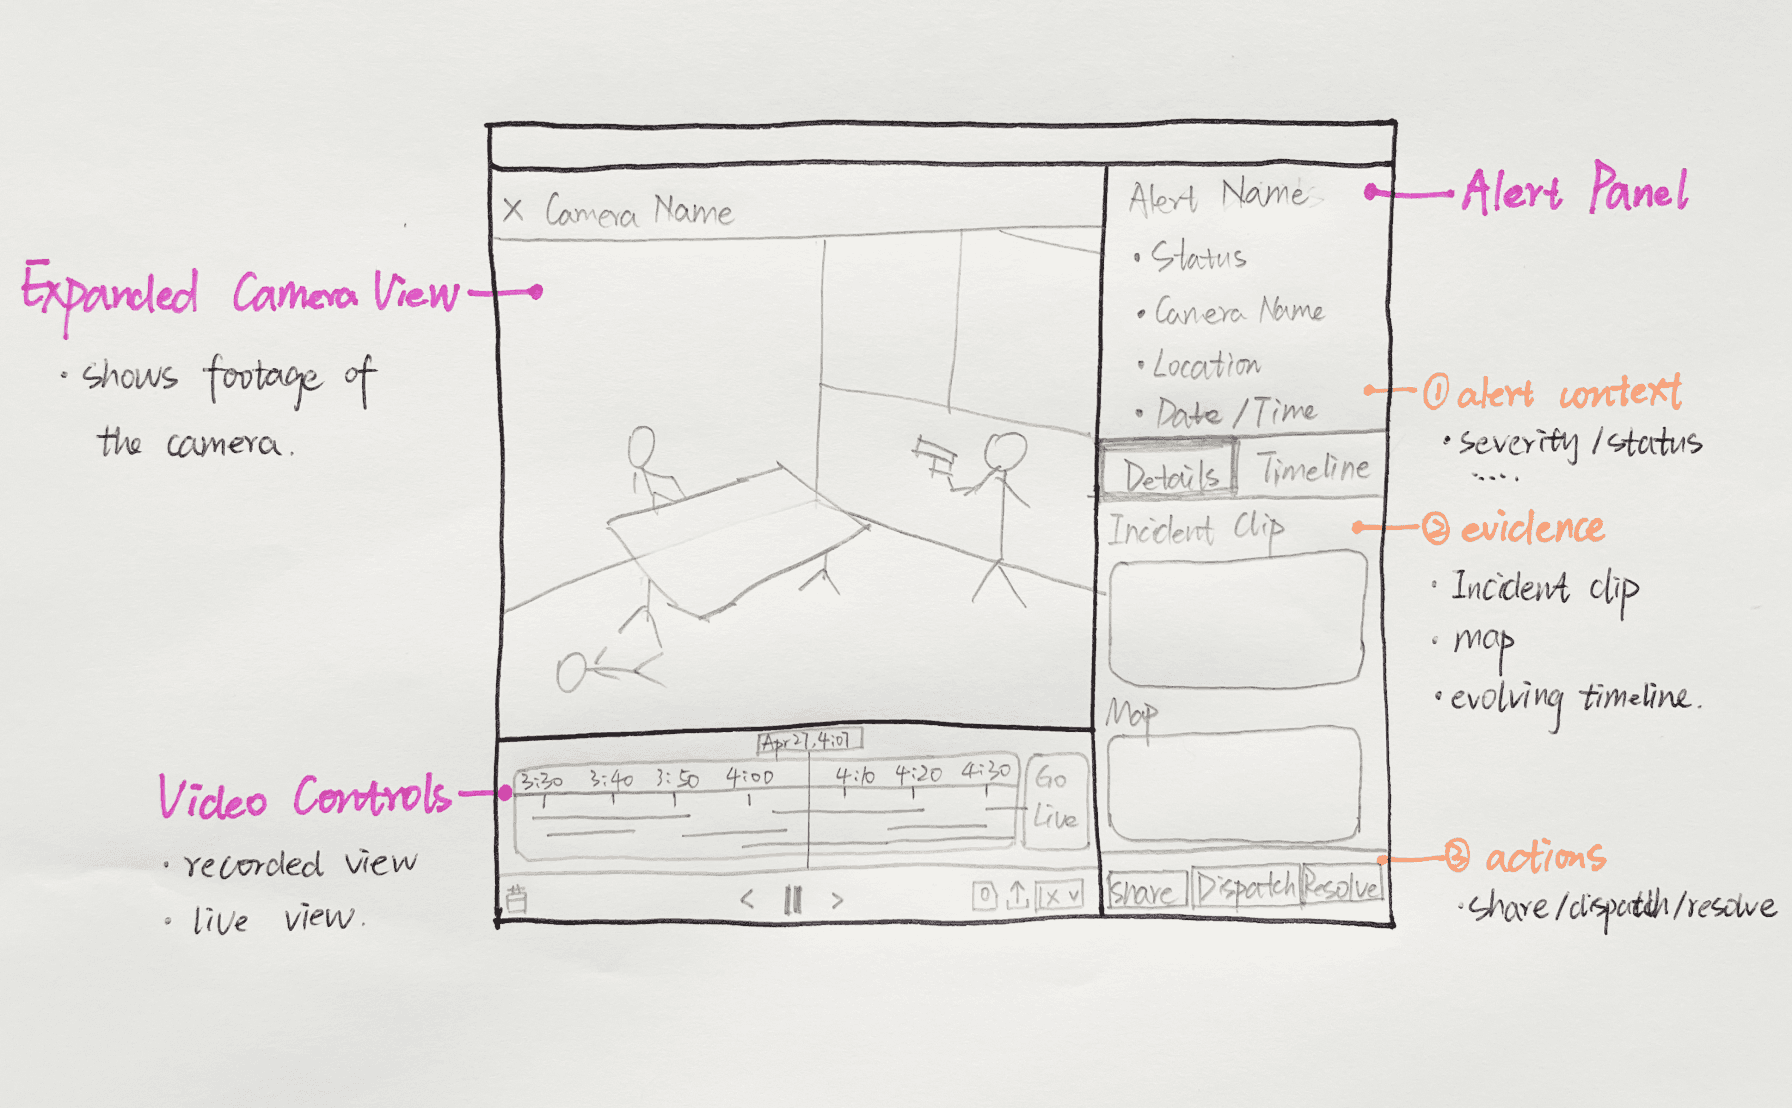 Expanded Camera View
· shows footage of
the camera.
Video Controls
· recorded view
· live view.
X Camera Name
Apr 27, 4:07
3:30 3:40 3:50 4:00 4:10 4:20 4:30
Go
Live
< || >
1x v
Alert Name
· Status
· Camera Name
· Location
· Date / Time
Details Timeline
Incident Clip
Map
Share Dispatch Resolve
Alert Panel
① alert context
· severity / status
.....
② evidence
· Incident clip
· map
· evolving timeline.
③ actions
· share/dispatch/resolve